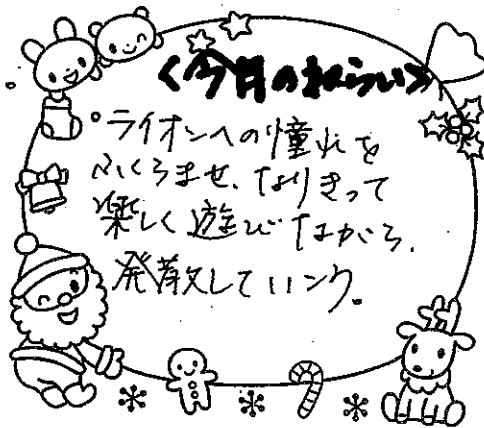 <今月のねらい>
・ライオンへの憧れを
ふくらませ、なりきって
楽しく遊びながら、
発散していく。